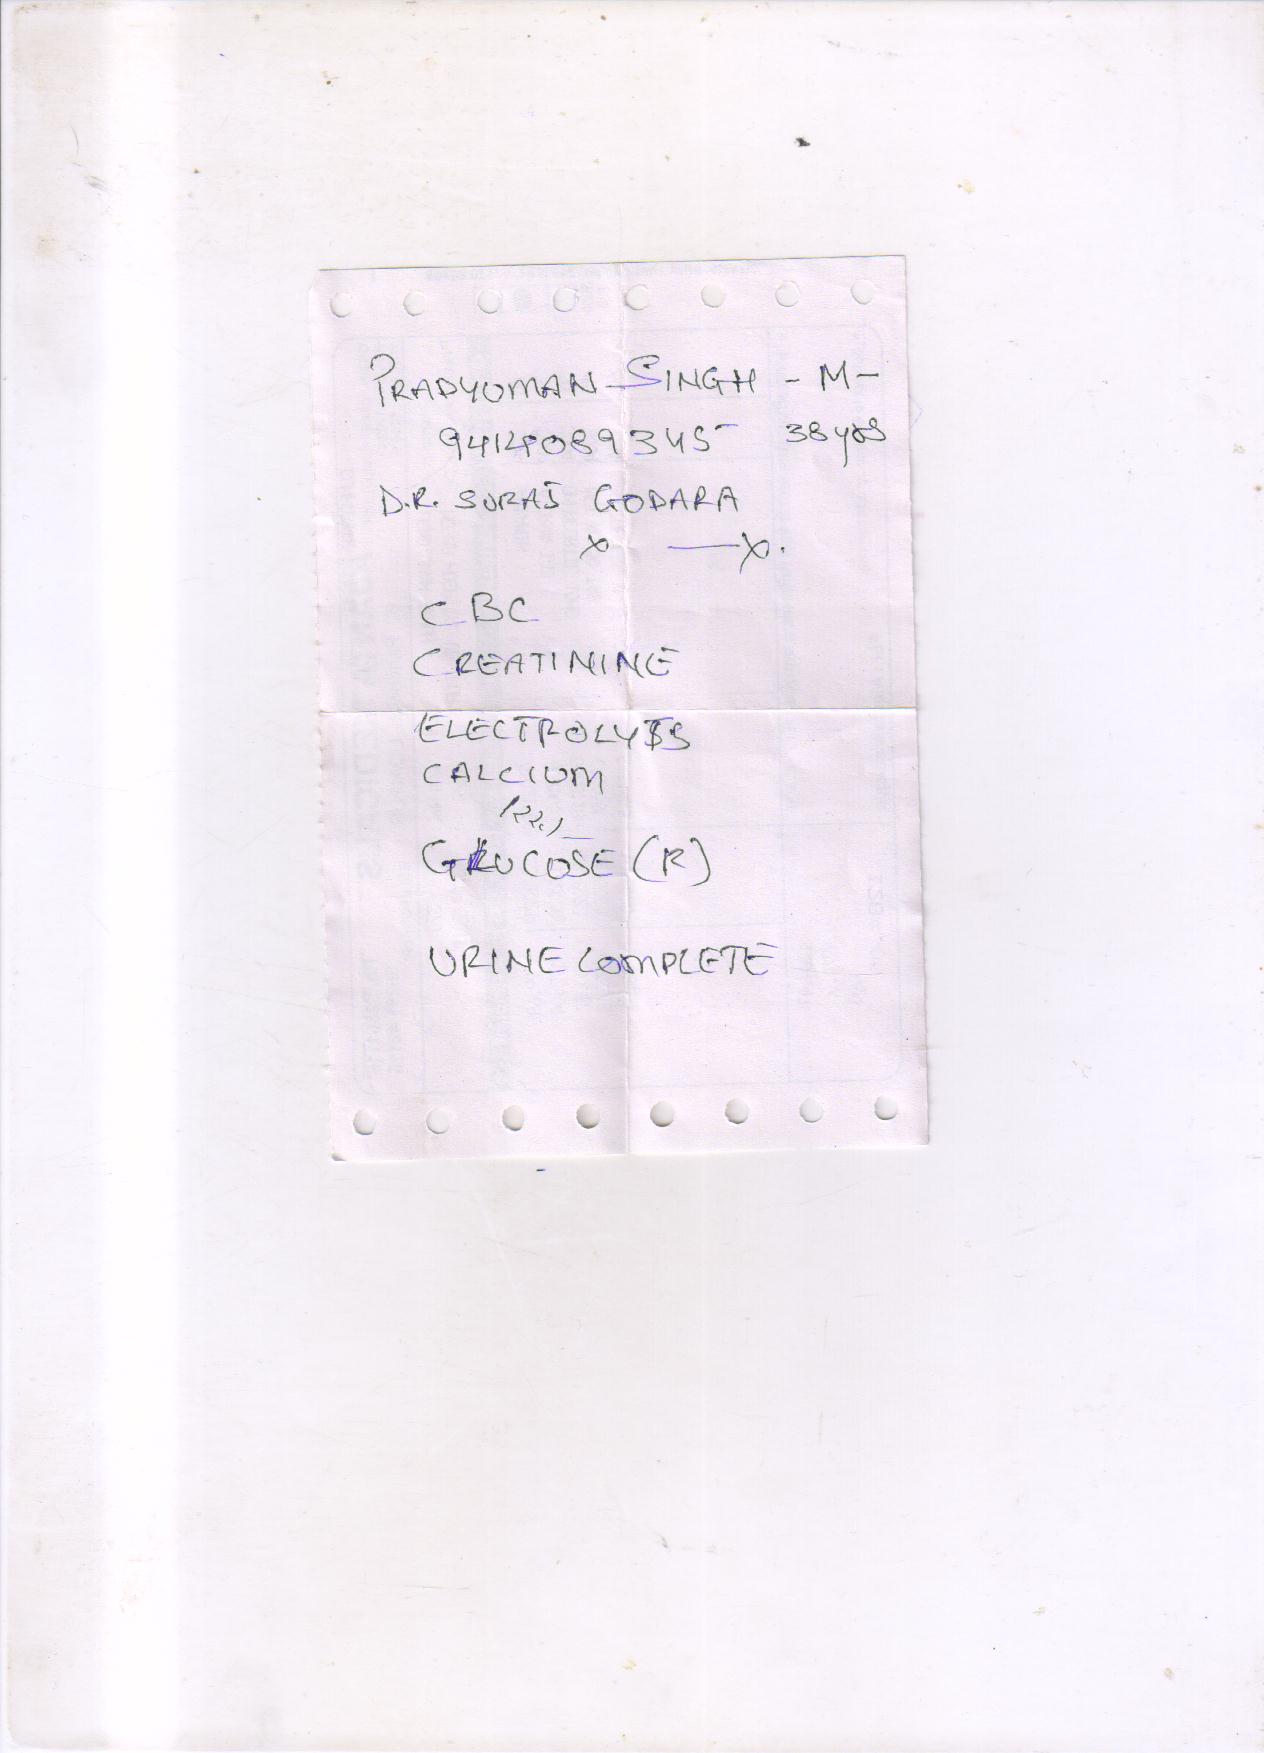 PRADYUMAN SINGH - M -
9414089345 38 yrs
D.R. SURAJ GODARA
x —x.
CBC
CREATININE
ELECTROLYTS
CALCIUM
GLUCOSE (R)
URINE COMPLETE